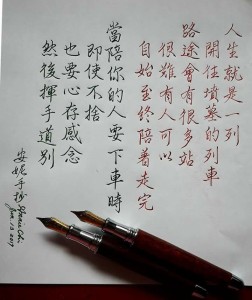 人生就是一列
開往墳墓的列車
路途會有很多站
很難有人可以
自始至終陪著走完
當陪你的人要下車時
即使不捨
也要心存感念
然後揮手道別
安妮手抄
Annie Chi
Jun. 13 2017